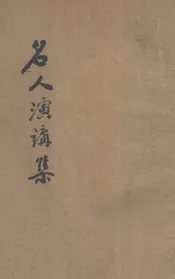 名人演講集